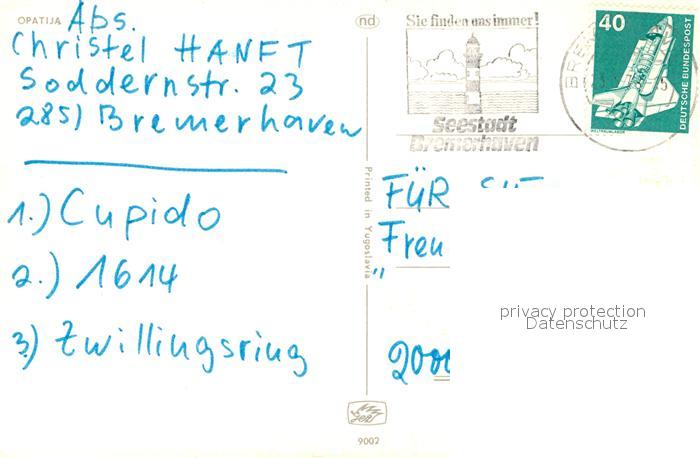 OPATIJA
Abs.
Christel HANFT
Soddernstr. 23
285) Bremerhaven
1.) Cupido
2.) 1614
3) Zwillingsring
nd
Printed in Yugoslavia
9002
Sie finden uns immer!
Seestadt
Bremerhaven
40
DEUTSCHE BUNDESPOST
WELTRAUMLABOR
FÜR
Freu
"
200
privacy protection
Datenschutz